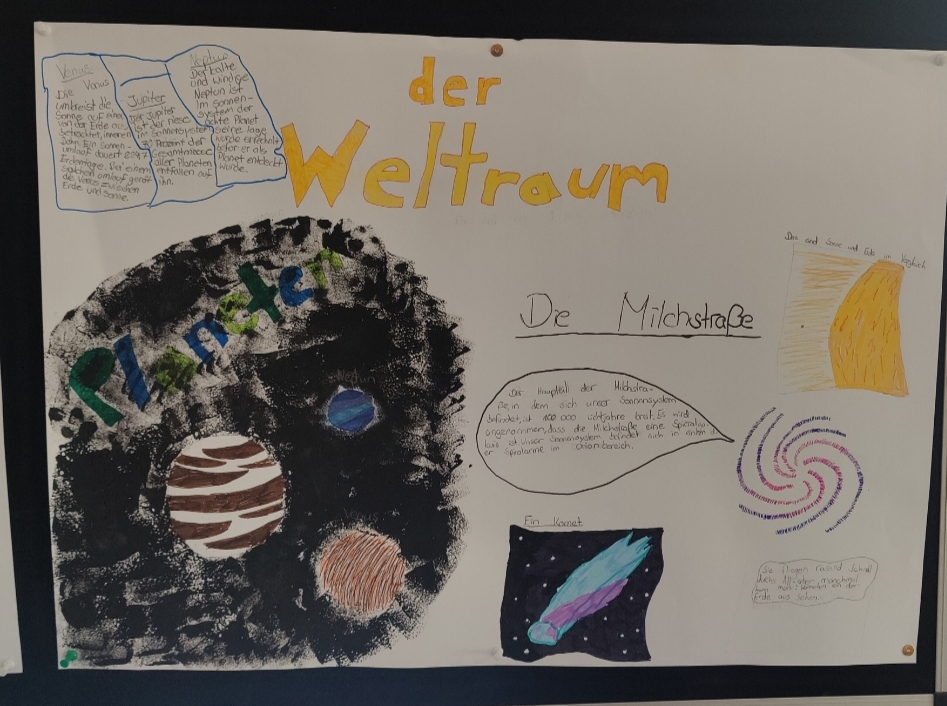 der
Weltraum
Venus
Die Venus
umkreist die
Sonne auf einer
von der Erde aus
betrachtet, inneren
Bahn. Ein Sonnen-
umlauf dauert
Erdentage. Bei einem
solchen umlauf gerät
die Venus zwischen
Erde und Sonne.
Jupiter
Der Jupiter
ist der riese
im Sonnensystem
70 Prozent der
Gesamtmasse
aller Planeten
entfallen auf
ihn.
Neptun
Der kalte
und windige
Neptun ist
im Sonnen-
system der
achte Planet
seine lage
wurde errechnet
befor er als
Planet entdeckt
wurde.
Planeten
Die Milchstraße
Der Hauptteil der Milchstra-
ße, in dem sich unser Sonnensystem
befindet, ist 100 000 Lichtjahre breit. Es wird
angenommen, dass die Milchstraße eine
ist. Unser Sonnensystem befindet sich in
er Spiralarme im Orionbereich.
Das sind Sonne und Erde im Vergleich
Ein Komet
Sie fliegen rasend schnell
durchs All, aber manchmal
kann man Kometen von der
Erde aus sehen.